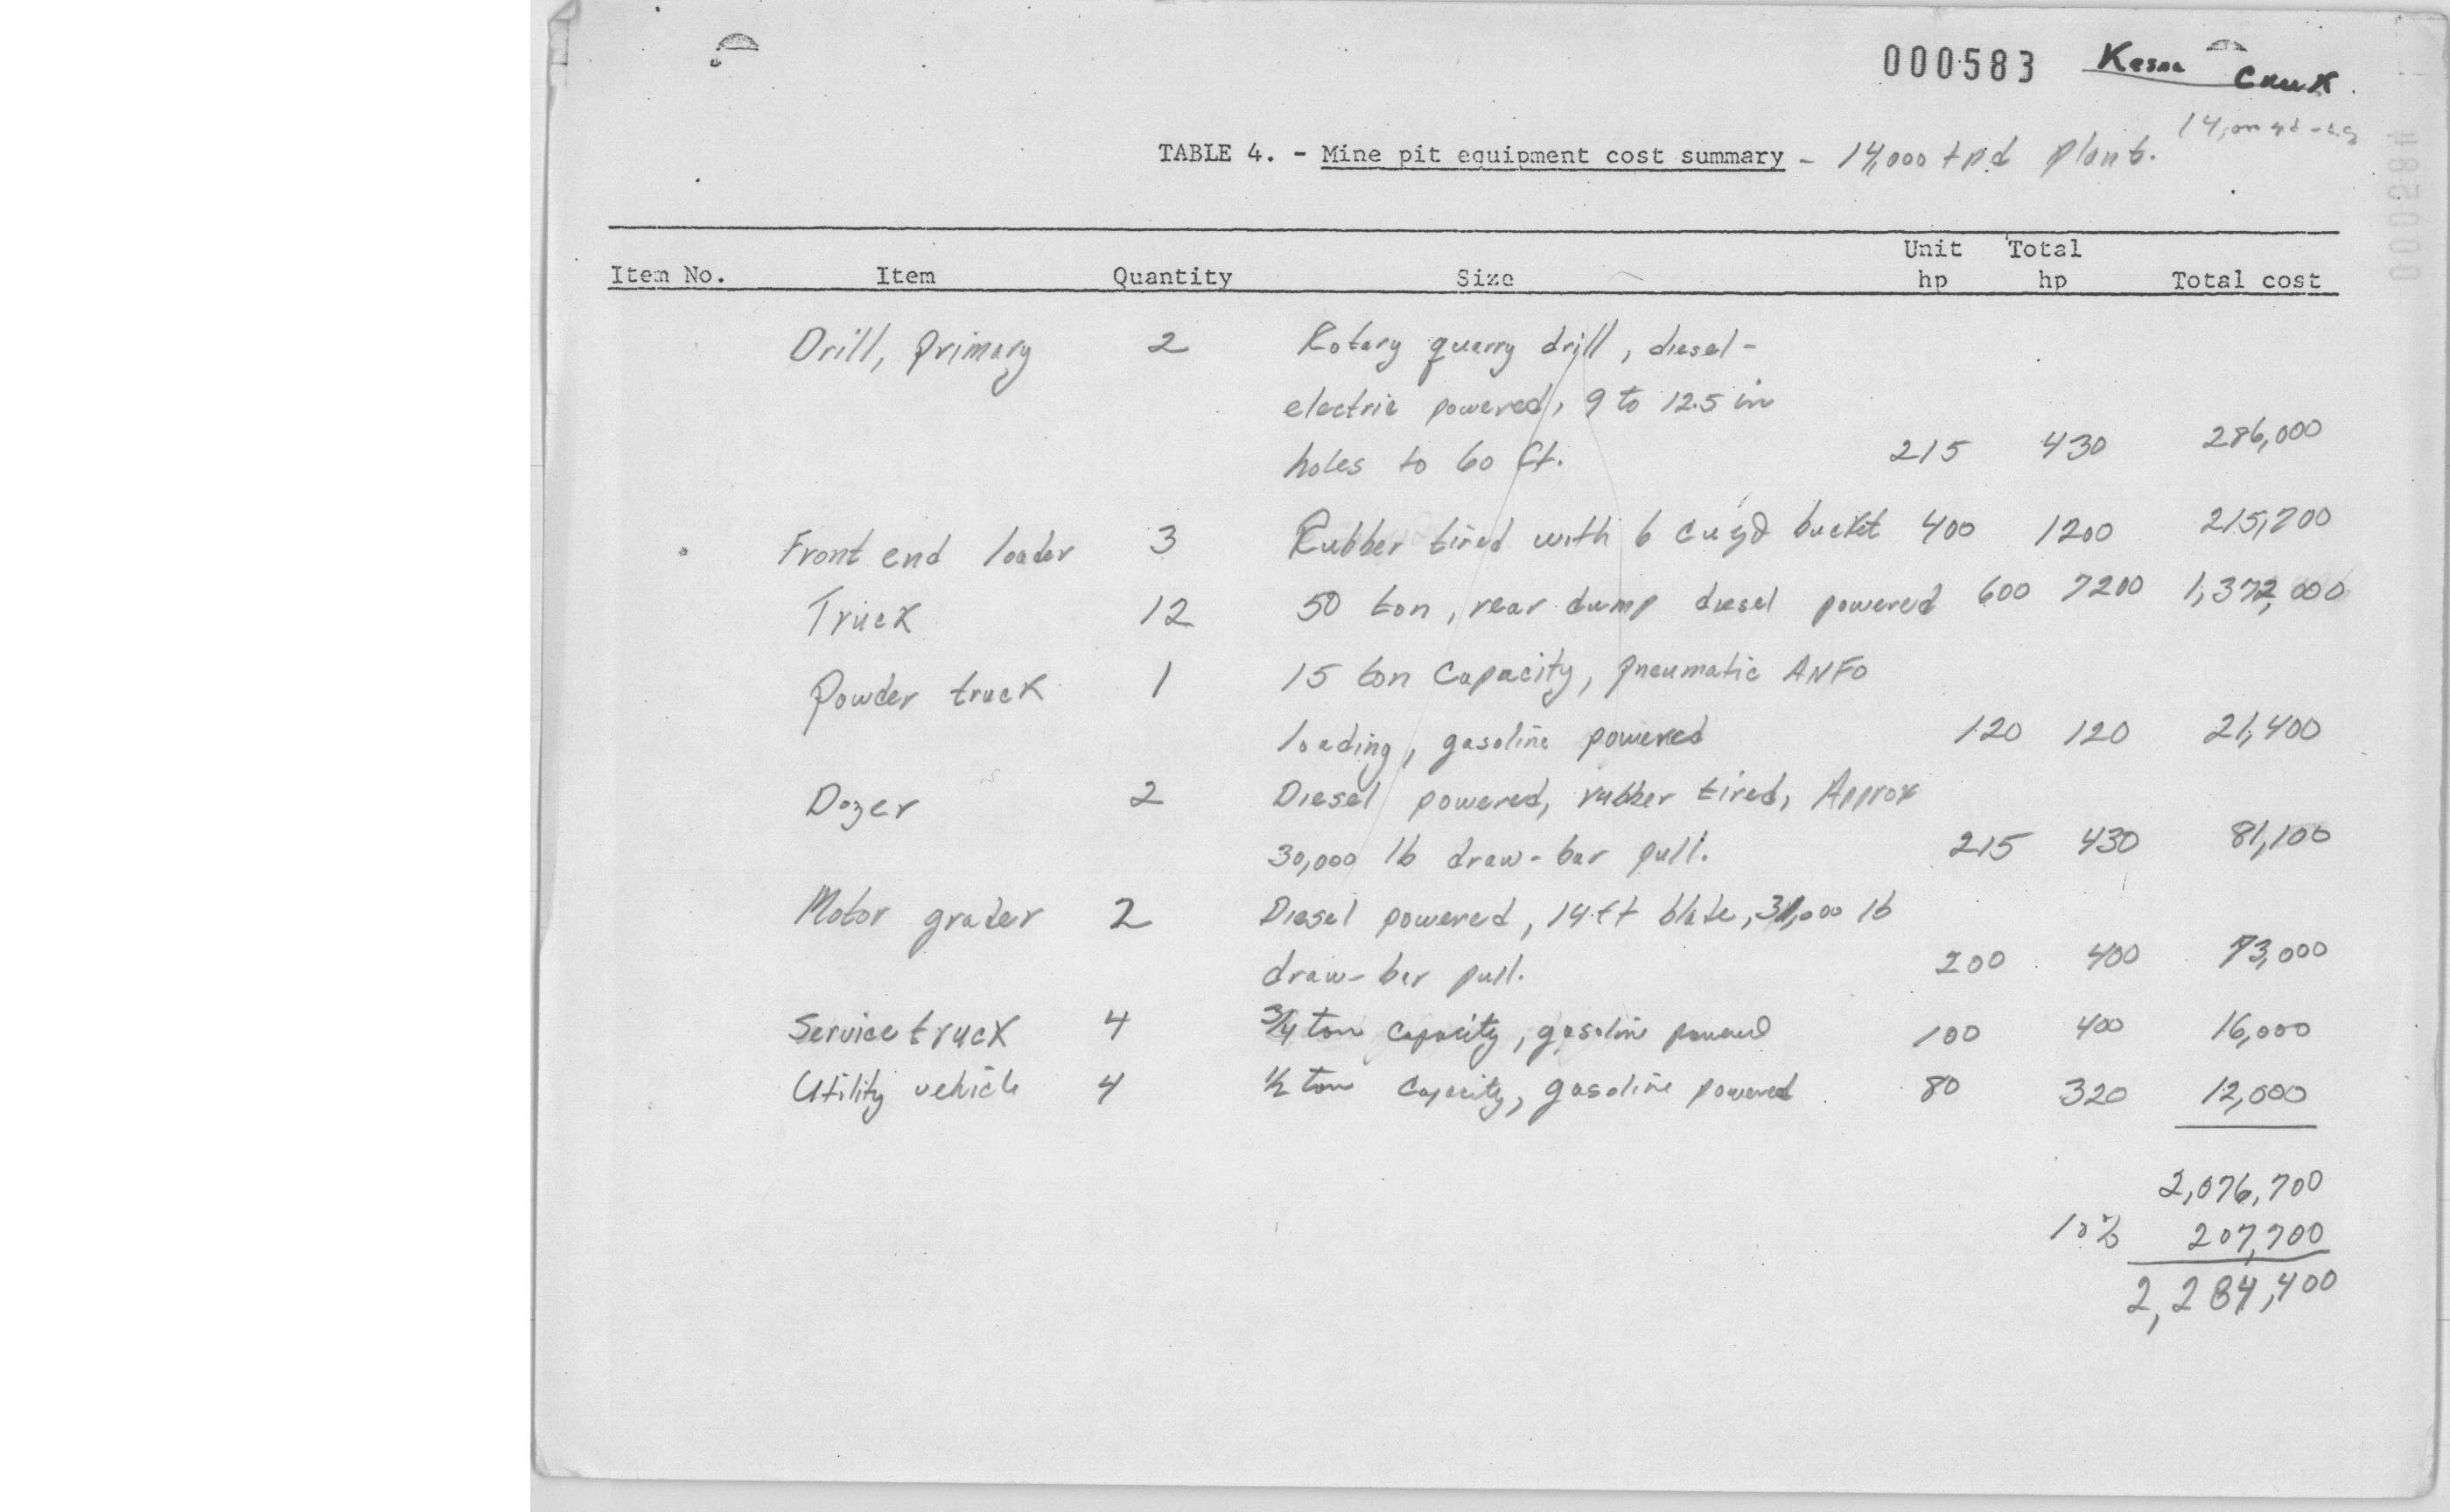 000583 Kasna Creek
TABLE 4. - Mine pit equipment cost summary - 14,000 tpd plant.
Item No. Item Quantity Size Unit hp Total hp Total cost
Drill, primary 2 Rotary quarry drill, diesel-
electric powered, 9 to 12.5 in
holes to 60 ft. 215 430 286,000
Front end loader 3 Rubber tired with 6 cu yd bucket 400 1200 215,200
Truck 12 50 ton, rear dump diesel powered 600 7200 1,372,000
Powder truck 1 15 ton Capacity, pneumatic ANFO
loading, gasoline powered 120 120 21,400
Dozer 2 Diesel powered, rubber tired, Approx
30,000 lb draw-bar pull. 215 430 81,100
Motor grader 2 Diesel powered, 14 ft blade, 31,000 lb
draw-bar pull. 200 400 73,000
Service truck 4 3/4 ton capacity, gasoline powered 100 400 16,000
Utility vehicle 4 1/2 ton capacity, gasoline powered 80 320 12,000
2,076,700
10% 207,700
2,284,400